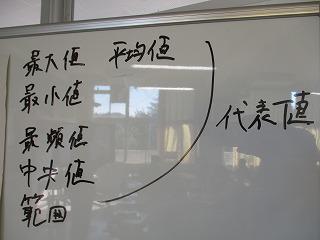 最大値 平均値
最小値
最頻値
中央値
範囲
代表値